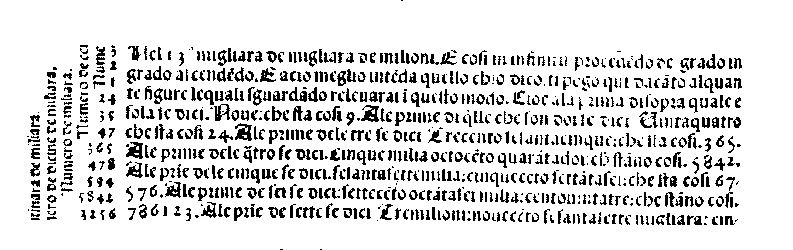 Nel 13 migliara de migliara de milioni. E cosi in infinitu procedēdo de grado in
grado ascendēdo. E acio meglio intēda quello chio dico. ti pego qui dacāto alquan
te figure lequali sguardādo releuarai i questo modo. Cioe ala prima disopra quale e
sola se dici. Noue: che sta cosi 9. Ale prime di q̄lle che son doi se dici Vintaquatro
che sta cosi 24. Ale prime dele tre se dici Trecento sesantacinque: che sta cosi. 365.
Ale prime dele q̄tro se dici. Cinque milia octocēto quarātadoi: ch̄ stāno cosi. 5842.
Ale prie dele cinque se dici. sesantasettemilia: cinquecēto settātasei: che sta cosi 67-
576. Ale prime de sei se dici: settecēto octātasei milia: centouintatre: che stāno cosi.
786123. Ale prie de sette se dici Tremilioni: nouecēto sesantasette migliara: cin-
Nume
Numero de
Numero de miliara.
de miliara,
miliara de miliara.
24
35
47
365
478
594
5842
3256